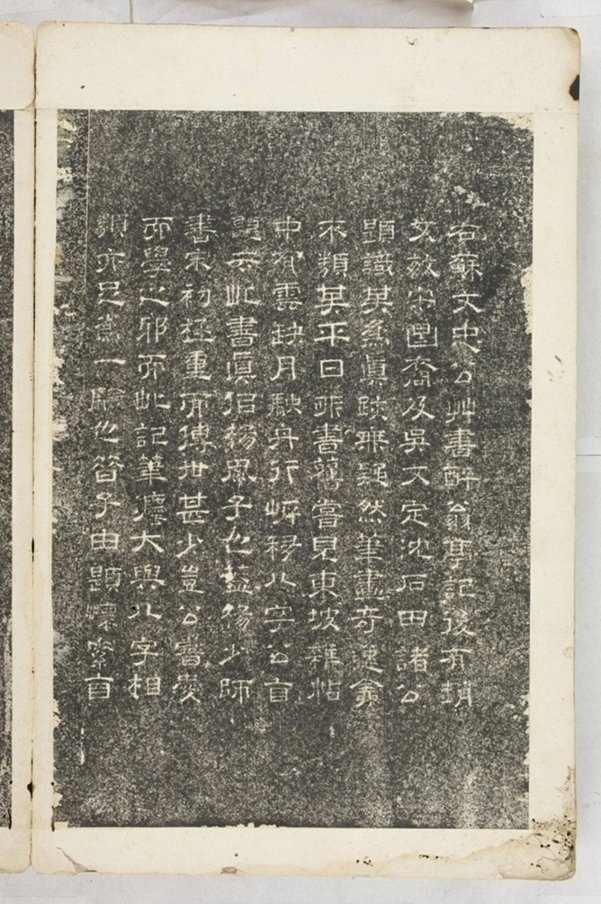 右蘇文忠公艸書醉翁亭記後有趙
文敏宋昌裔及吳文定沈石田諸公
題識其為真跡無疑然筆畫奇逸翁
不類其平日所書舊嘗見東坡雜帖
中有雲缺月秋舟行峽移八字公自
題云此書真猶楊風子也蓋楊少師
書宋初極重而傳世甚少豈公嘗愛
而學之邪而此記筆勢大與八字相
類亦足為一驗也昔子由題懷素自